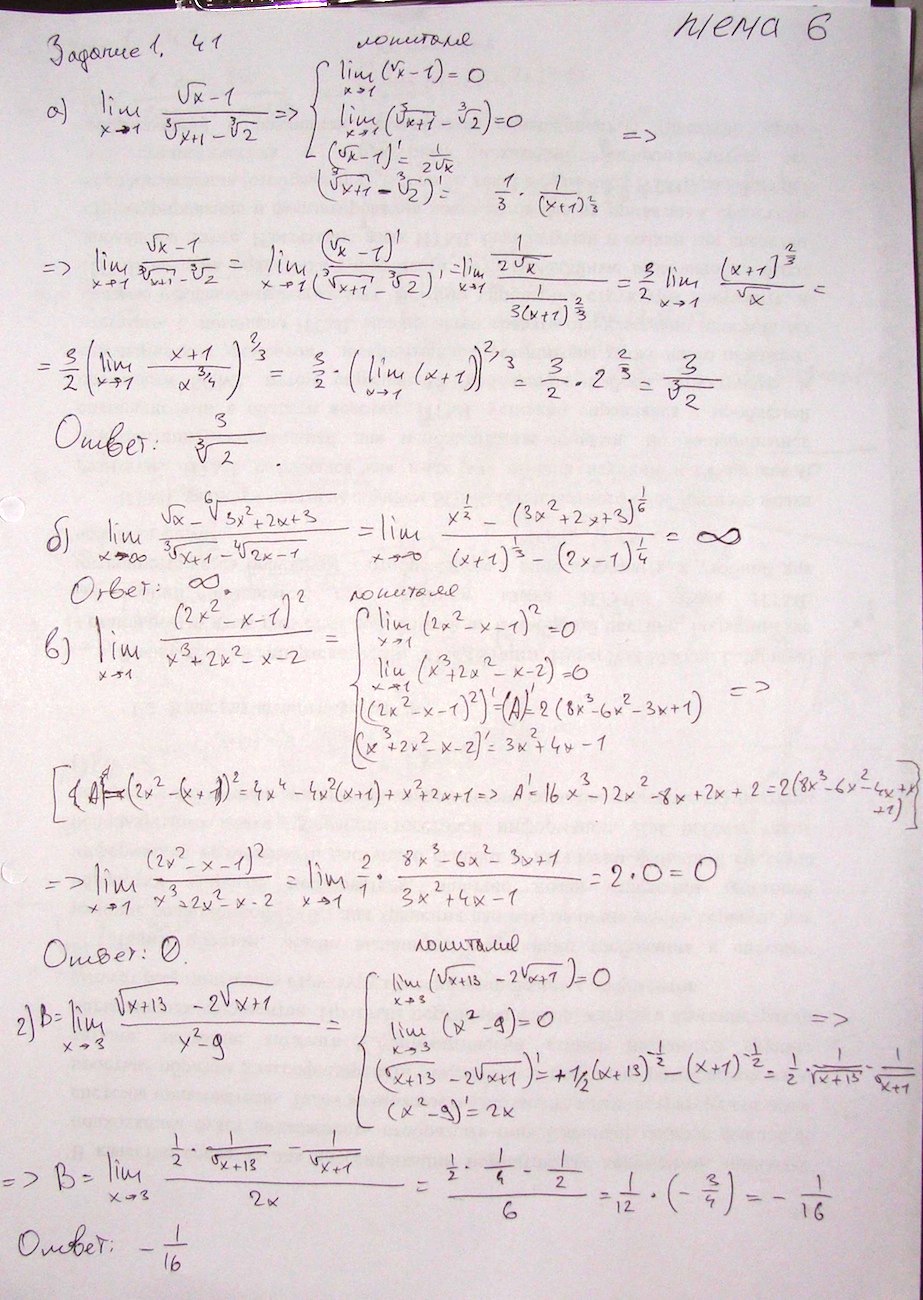 тема 6
Задание 1. 41 лопиталя
а) lim x→1 (√x − 1)/(∛(x+1) − ∛2) => { lim x→1 (√x − 1) = 0
lim x→1 (∛(x+1) − ∛2) = 0 =>
(√x − 1)' = 1/(2√x)
(∛(x+1) − ∛2)' = 1/3 · 1/(x+1)^(2/3)
=> lim x→1 (√x − 1)/(∛(x+1) − ∛2) = lim x→1 (√x − 1)'/(∛(x+1) − ∛2)' = lim x→1 (1/(2√x))/(1/(3(x+1)^(2/3))) = 3/2 lim x→1 (x+1)^(2/3)/√x =
= 3/2 (lim x→1 (x+1)/x^(3/4))^(2/3) = 3/2 · (lim x→1 (x+1))^(2/3) = 3/2 · 2^(2/3) = 3/∛2
Ответ: 3/∛2.
б) lim x→∞ (√x − ⁶√(3x²+2x+3))/(∛(x+1) − ⁴√(2x−1)) = lim x→∞ (x^(1/2) − (3x²+2x+3)^(1/6))/((x+1)^(1/3) − (2x−1)^(1/4)) = ∞
Ответ: ∞. лопиталя
в) lim x→1 (2x² − x − 1)²/(x³+2x²−x−2) = { lim x→1 (2x² − x − 1)² = 0
lim x→1 (x³+2x²−x−2) = 0 =>
((2x²−x−1)²)' = (A)' = 2(8x³−6x²−3x+1)
(x³+2x²−x−2)' = 3x²+4x−1
[{A = (2x² − (x+1))² = 4x⁴ − 4x²(x+1) + x²+2x+1 => A' = 16x³ − 12x² − 8x + 2x + 2 = 2(8x³−6x²−4x+x+1)}]
=> lim x→1 (2x² − x − 1)²/(x³+2x²−x−2) = lim x→1 2/1 · (8x³−6x²−3x+1)/(3x²+4x−1) = 2·0 = 0
Ответ: 0. лопиталя
г) B = lim x→3 (√(x+13) − 2√(x+1))/(x²−9) = { lim x→3 (√(x+13) − 2√(x+1)) = 0
lim x→3 (x²−9) = 0 =>
(√(x+13) − 2√(x+1))' = +1/2 (x+13)^(−1/2) − (x+1)^(−1/2) = 1/2 · 1/√(x+13) − 1/√(x+1)
(x²−9)' = 2x
=> B = lim x→3 (1/2 · 1/√(x+13) − 1/√(x+1))/(2x) = (1/2 · 1/4 − 1/2)/6 = 1/12 · (−3/4) = −1/16
Ответ: −1/16